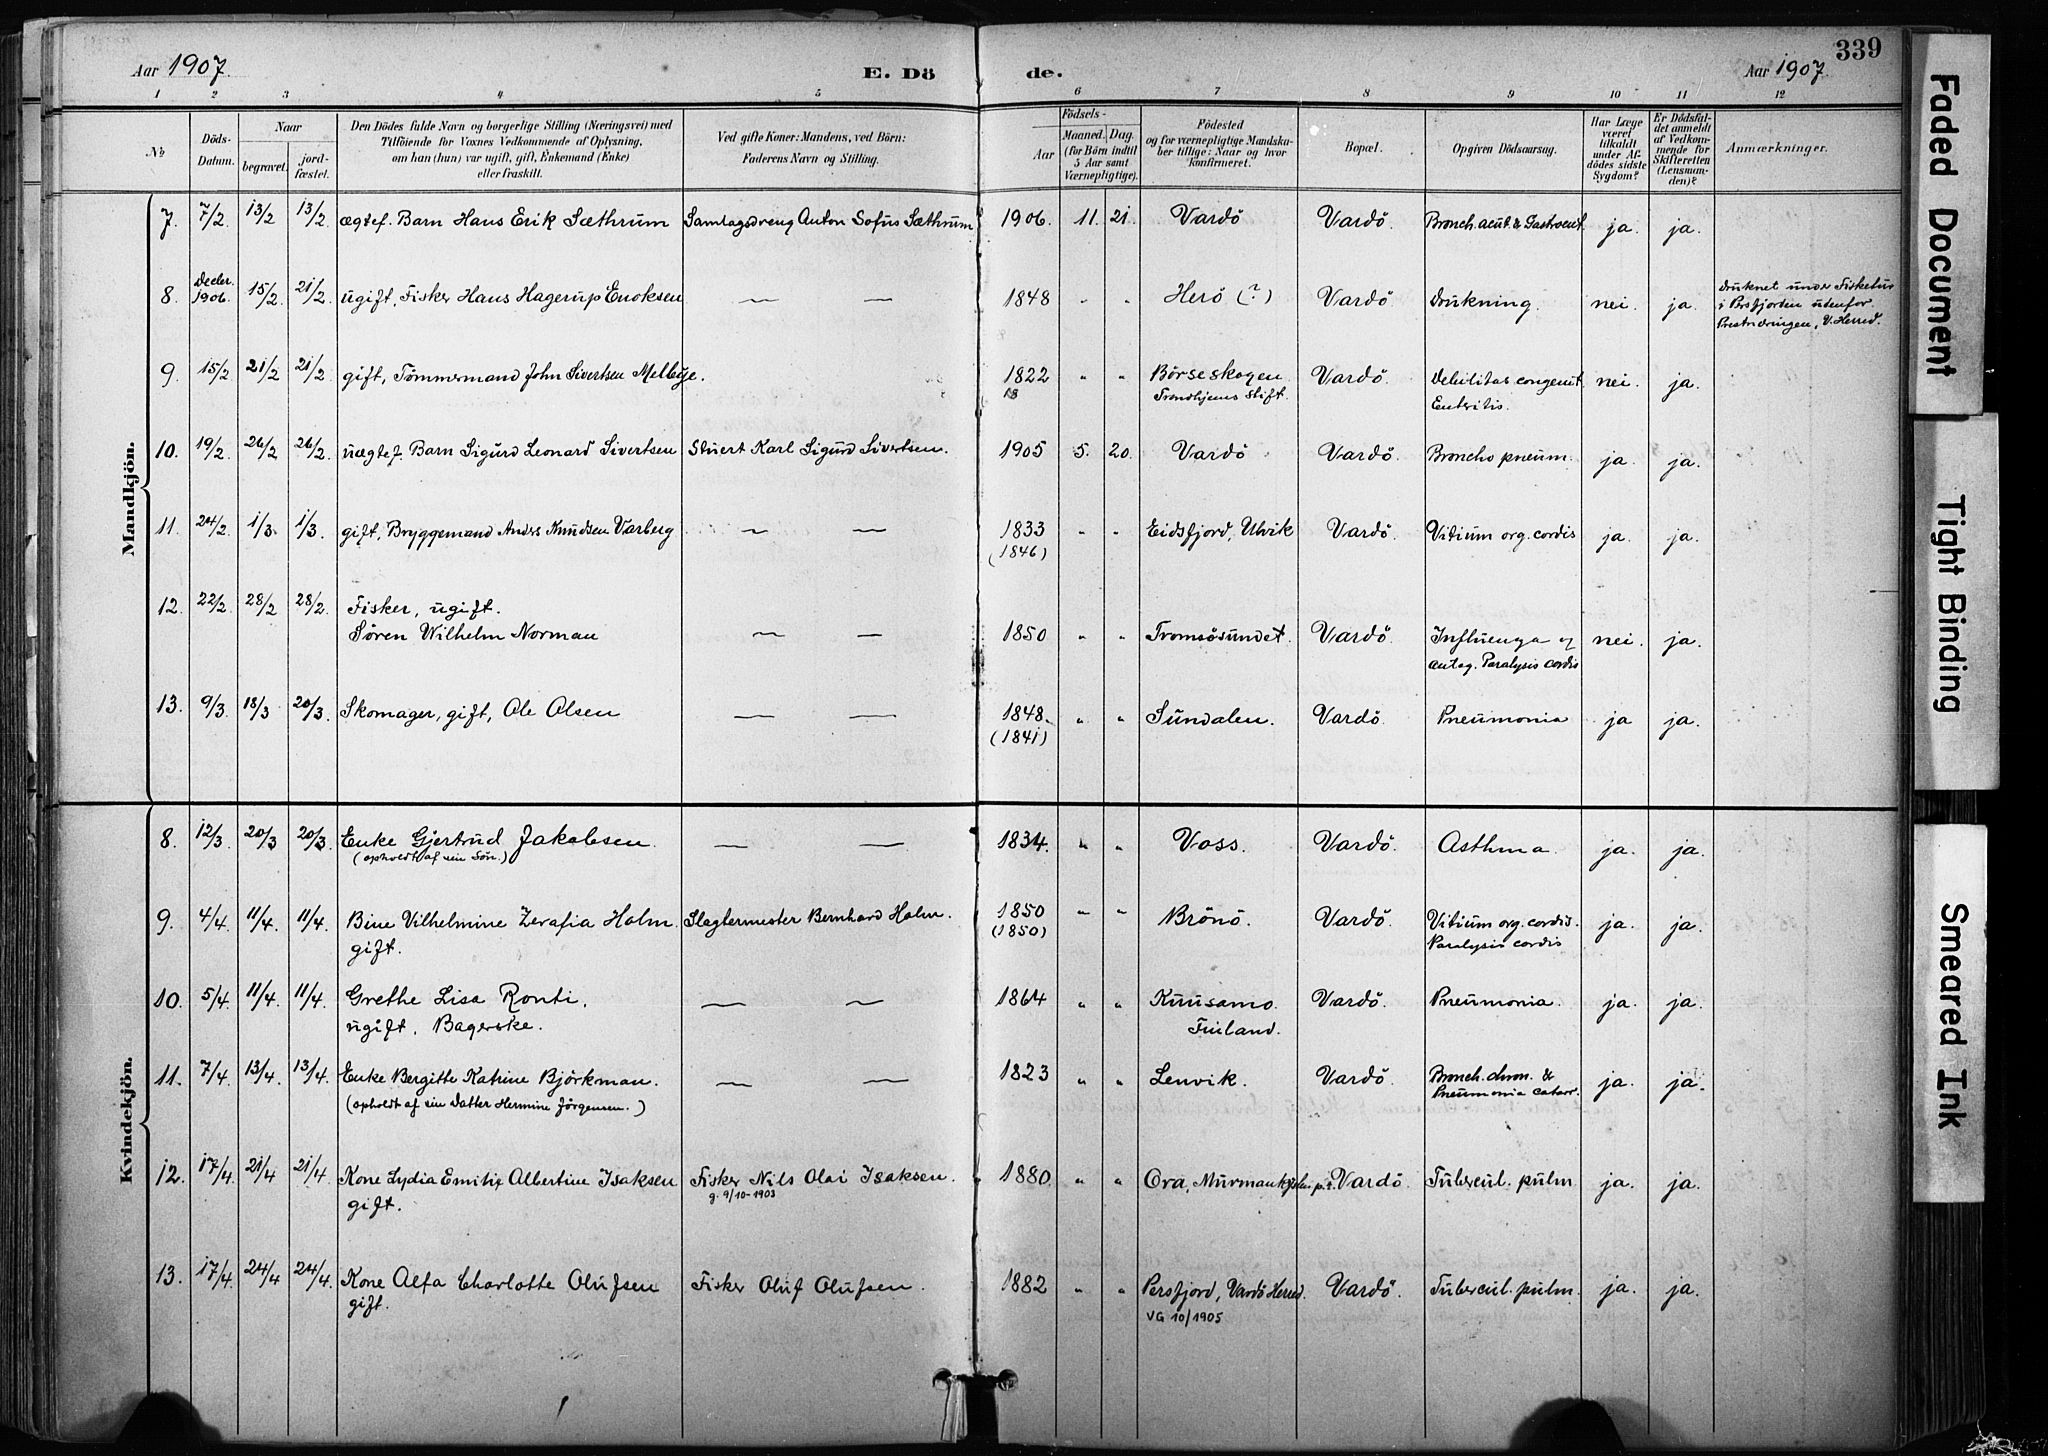 Aar 1907.
E. Dö
de.
Aar 1907.
339
1 2 3 4 5 6 7 8 9 10 11 12
No
Döds-
Datum.
Naar
begravet.
jord-
fæstet.
Den Dödes fulde Navn og borgerlige Stilling (Næringsvei) med
Tilföiende for Voxnes Vedkommende af Oplysning,
om han (hun) var ugift, gift, Enkemand (Enke)
eller fraskilt.
Ved gifte Koner: Mandens, ved Börn:
Faderens Navn og Stilling.
Födsels-
Aar
Maaned. Dag.
(for Börn indtil
5 Aar samt
Værnepligtige).
Födested
og for værnepligtige Mandska-
ber tillige: Naar og hvor
konfirmeret.
Bopæl.
Opgiven Dödsaarsag.
Har Læge
været
tilkaldt
under Af-
dödes sidste
Sygdom?
Er Dödsfal-
det anmeldt
af Vedkom-
mende for
Skifteretten
(Lensman-
den)?
Anmærkninger.
Mandkjön.
7. 7/2 13/2 13/2 ægtef. Barn Hans Erik Sæthrum Samlagsdreng Anton Sofus Sæthrum 1906. 11. 21. Vardö Vardö. Bronch. acut. & Gastroent. ja. ja.
8. Decbr. 1906. 15/2. 21/2. ugift, Fisker Hans Hagerup Enoksen — — 1848 " " Herö (?) Vardö. Drukning. nei. ja. druknet under Fisketur
i Persfjorden udenfor
Prestnæringen, V. Herred.
9. 15/2 21/2 21/2 gift, Tömmermand John Sivertsen Melbye. 1822 " " Börseskogen Vardö. Debilitas congenit. nei. ja.
18 Trondhjems Stift. Enteritis.
10. 19/2. 26/2 26/2. uægtef. Barn Sigurd Leonard Sivertsen Stuert Karl Sigurd Sivertsen. 1905 5. 20. Vardö Vardö. Broncho pneum. ja. ja.
11. 24/2 1/3. 1/3. gift, Bryggemand Anders Knudsen Varberg — — 1833 " " Eidsfjord, Ulvik Vardö. Vitium org. cordis ja. ja.
(1846)
12. 22/2. 28/2 28/2. Fisker, ugift.
Sören Wilhelm Norman — — 1850 " " Tromsösundet. Vardö. Influenza og nei. ja.
antag. Paralysis cordis
13. 9/3. 18/3 20/3. Skomager, gift, Ole Olsen — — 1848. " " Sundalen. Vardö. Pneumonia ja ja.
(1841)
Kvindekjön.
8. 12/3. 20/3 20/3. Enke Gjertrud Jakobsen. — — 1834. " " Voss. Vardö. Asthma. ja. ja.
(opholdt af sin Sön.)
9. 4/4. 11/4. 11/4. Bine Vilhelmine Zerafia Holm Slagtermester Bernhard Holm. 1850 " " Brönö. Vardö. Vitium org. cordis. ja. ja.
gift. (1850) Paralysis cordis
10. 5/4. 11/4. 11/4. Grethe Lisa Ronti. — — 1864 " " Kuusamo. Vardö. Pneumonia. ja. ja.
ugift. Bagerske. Finland.
11. 7/4. 13/4. 13/4. Enke Bergitte Katrine Björkman. — — 1823 " " Lenvik. Vardö. Bronch. chron. & ja. ja.
(opholdt af sin Datter Hermine Jörgensen.) Pneumonia catarr.
12. 17/4. 21/4 21/4. Kone Lydia Emilie Albertine Isaksen Fisker Nils Olai Isaksen. 1880. " " Ora, Murmankysten p.t. Vardö. Tubercul. pulm. ja. ja.
gift. g. 9/10-1903
13. 17/4. 24/4 24/4. Kone Alfa Charlotte Olufsen Fisker Oluf Olufsen. 1882 " " Persfjord, Vardö Herred. Vardö. Tubercul. pulm. ja. ja.
gift. VG 10/1905
Faded Document
Tight Binding
Smeared Ink